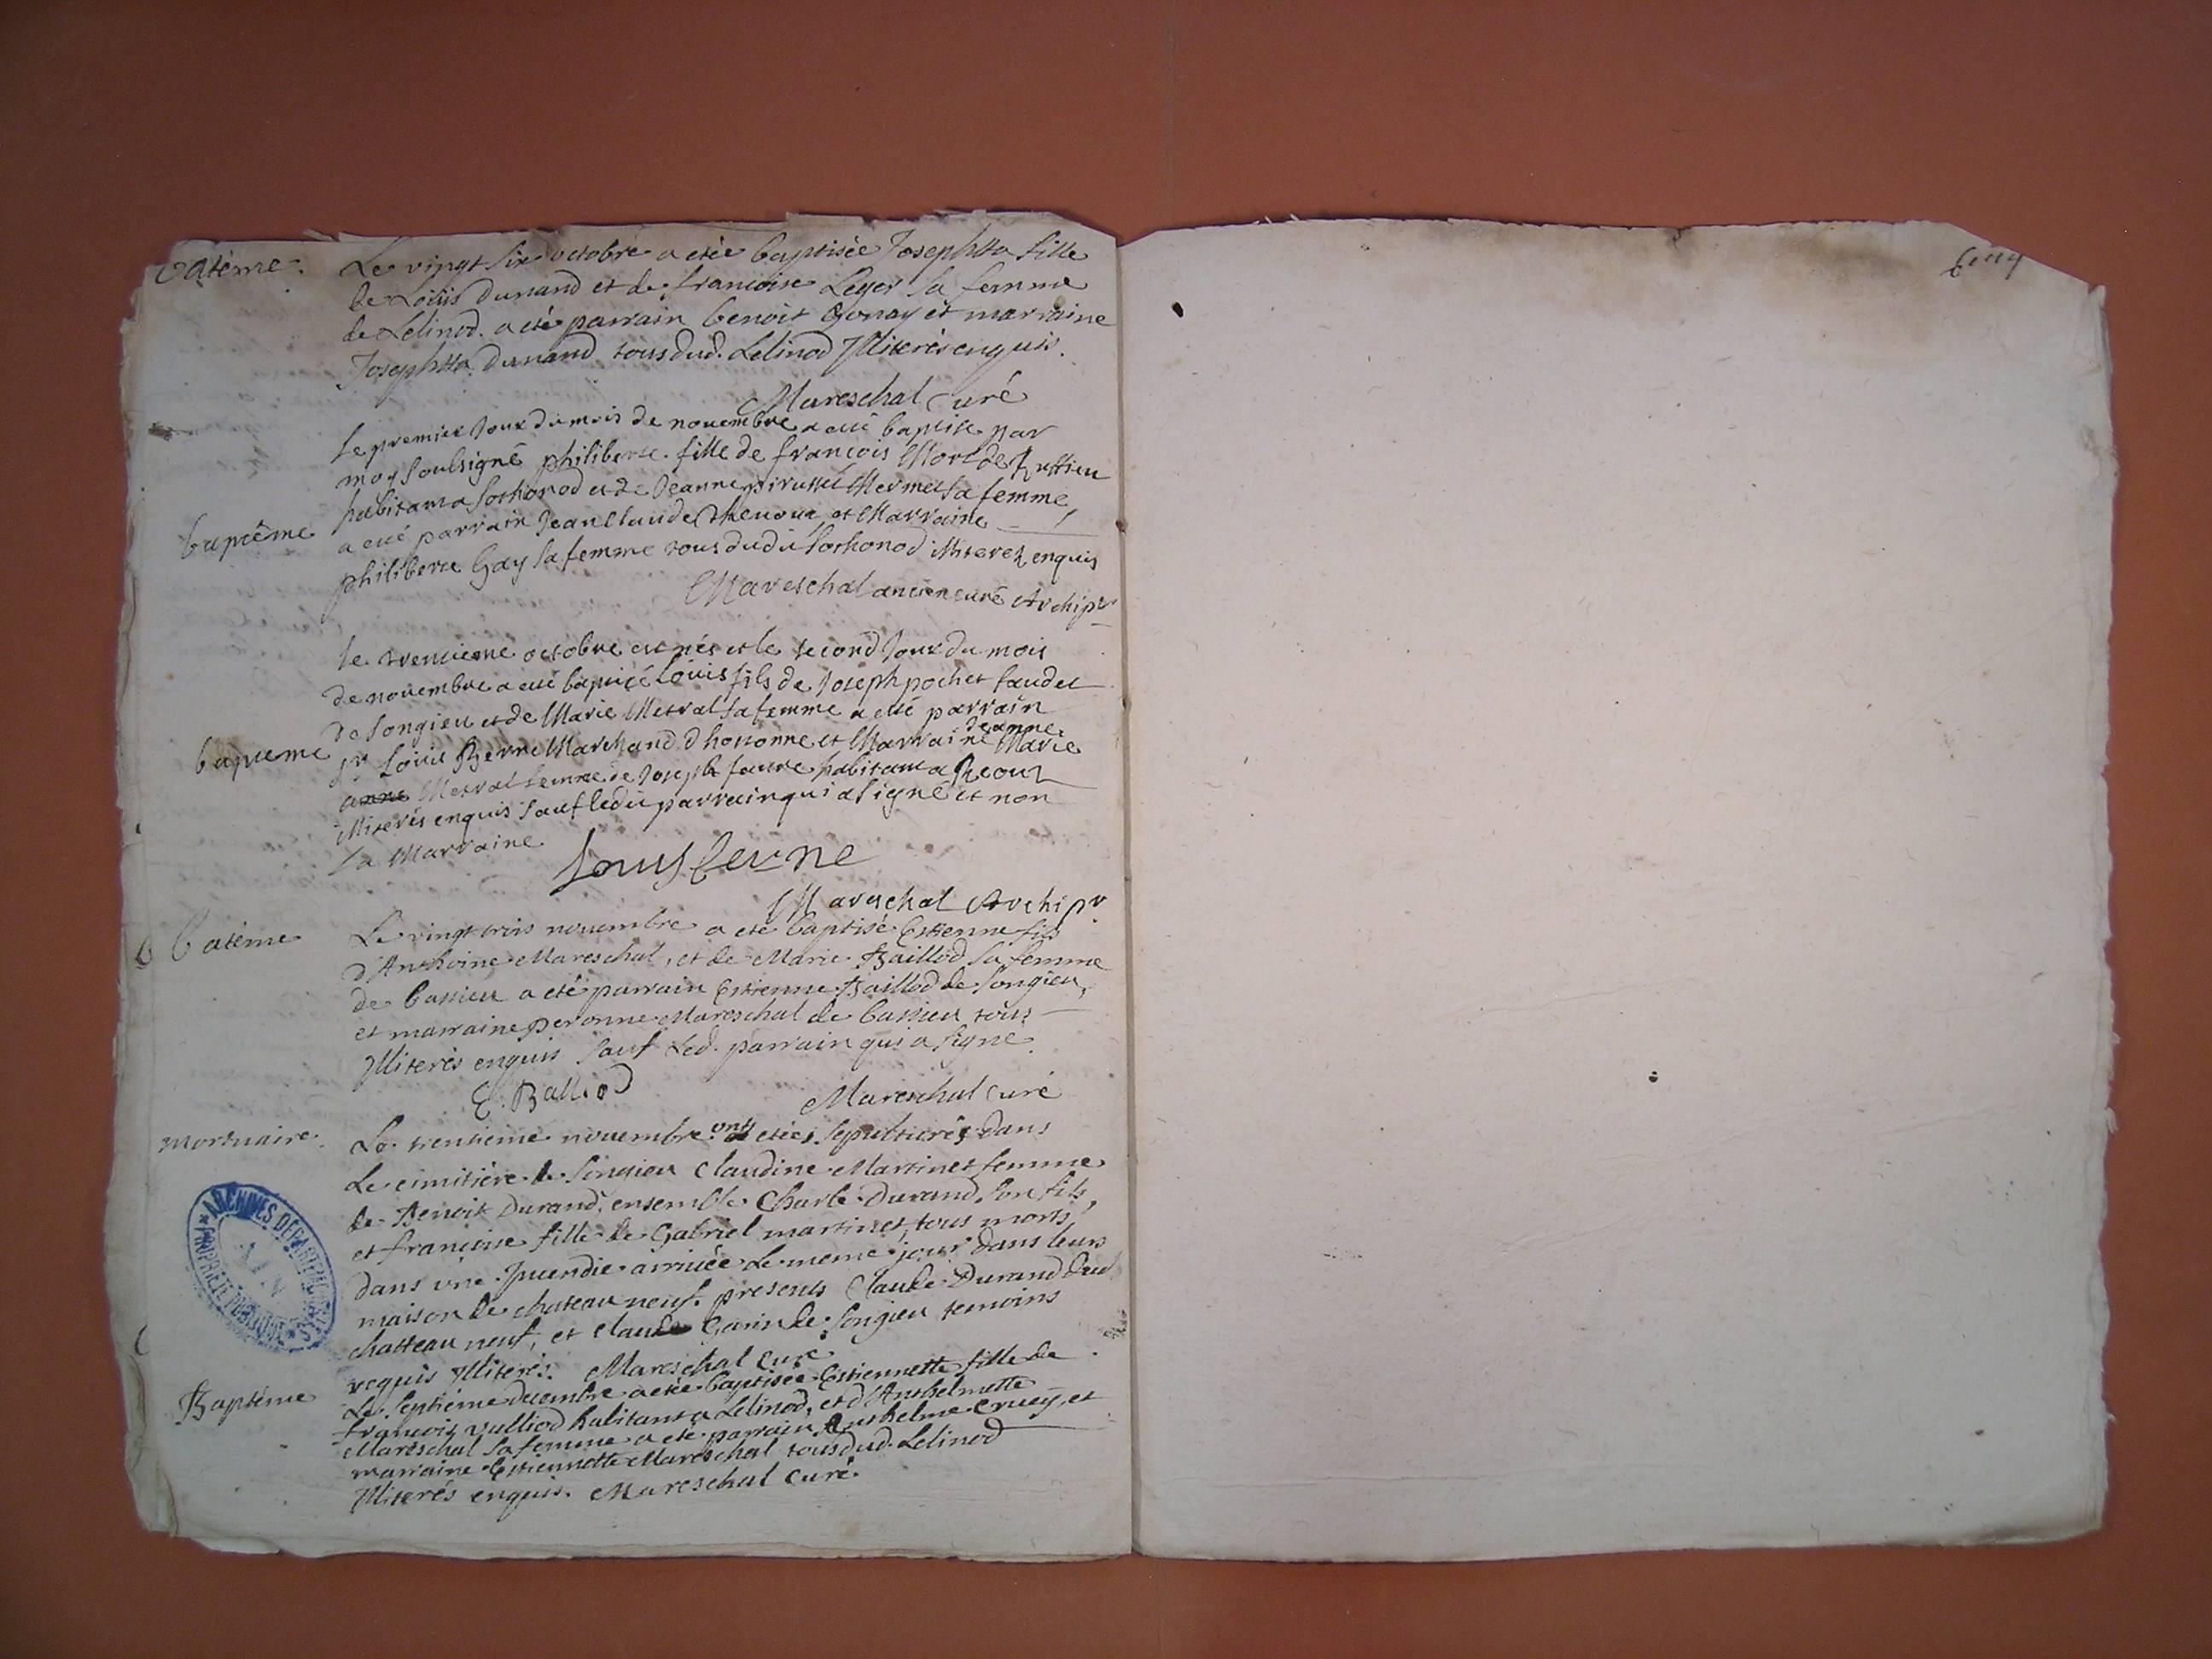 Batême.
Le vingt six octobre a etée baptisée Josephtta fille
de Loüis Dunand et de francoise Leger sa femme
de Lelinod. a eté parrain benoit Gonay et marraine
Josephtta Dunand tous dud. Lelinod Illiterés enquis.
Mareschal Curé
baptême
le premier Jour du mois de novembre a eté baptisé par
moy soubsigné philiberte fille de françois Mort de Ruffieu
habitant a Sothonod et de Jeanne Mermet sa femme
a eté parrain Jean Claude Thenoux et Marraine
philiberte Gay sa femme tous dudit Sothonod illiterez enquis
Mareschal ancien curé Archipr
bapteme
le trentieme octobre est nés et le second Jour du mois
de novembre a eté baptisé Loüis fils de Joseph pochet faudet
de songieu et de Marie Metral sa femme a eté parrain
sr Loüis Berne Marchand d'hotonne et Marraine Jeanne Marie
anne Metral femme de Joseph favre habitant a
illiterés enquis sauf ledit parrain qui a signé et non
la Marraine.
Louis berne
Mareschal Archipr
Batême
Le vingt trois novembre a eté baptisé Estienne fils
d'Anthoine Mareschal, et de Marie Baillod sa femme
de bassieu a eté parrain Estienne Baillod de Songieu,
et marraine peronne Mareschal de bassieu tous
Illiterés enquis sauf led. parrain qui a signé.
E. Balliod
Mareschal Curé
Mortuaire.
Le trentieme novembre ont etées sepulturés dans
Le cimitière de Songieu Claudine Martinet femme
de Benoit Durand, ensemble Charle Durand son fils,
et francoise fille de Gabriel martinet, tous morts
dans une Incendie arrivée Le meme jour dans leurs
maison de chateau neuf. presents Claude Durand dud
chatteau neuf, et Claude Garin de Songieu temoins
requis Illiterés. Mareschal Curé
Baptême
Le septième decembre a etée baptisée Estiennette fille de
francois Vulliod habitant a Lelinod, et d'Anthelmette
Mareschal sa femme a eté parrain Anthelme Cruey, et
marraine Estiennette Mareschal tous dud. Lelinod
Illiterés enquis. Mareschal Curé.
ARCHIVES DEPARTEMENTALES
AIN
PROPRIETE PUBLIQUE